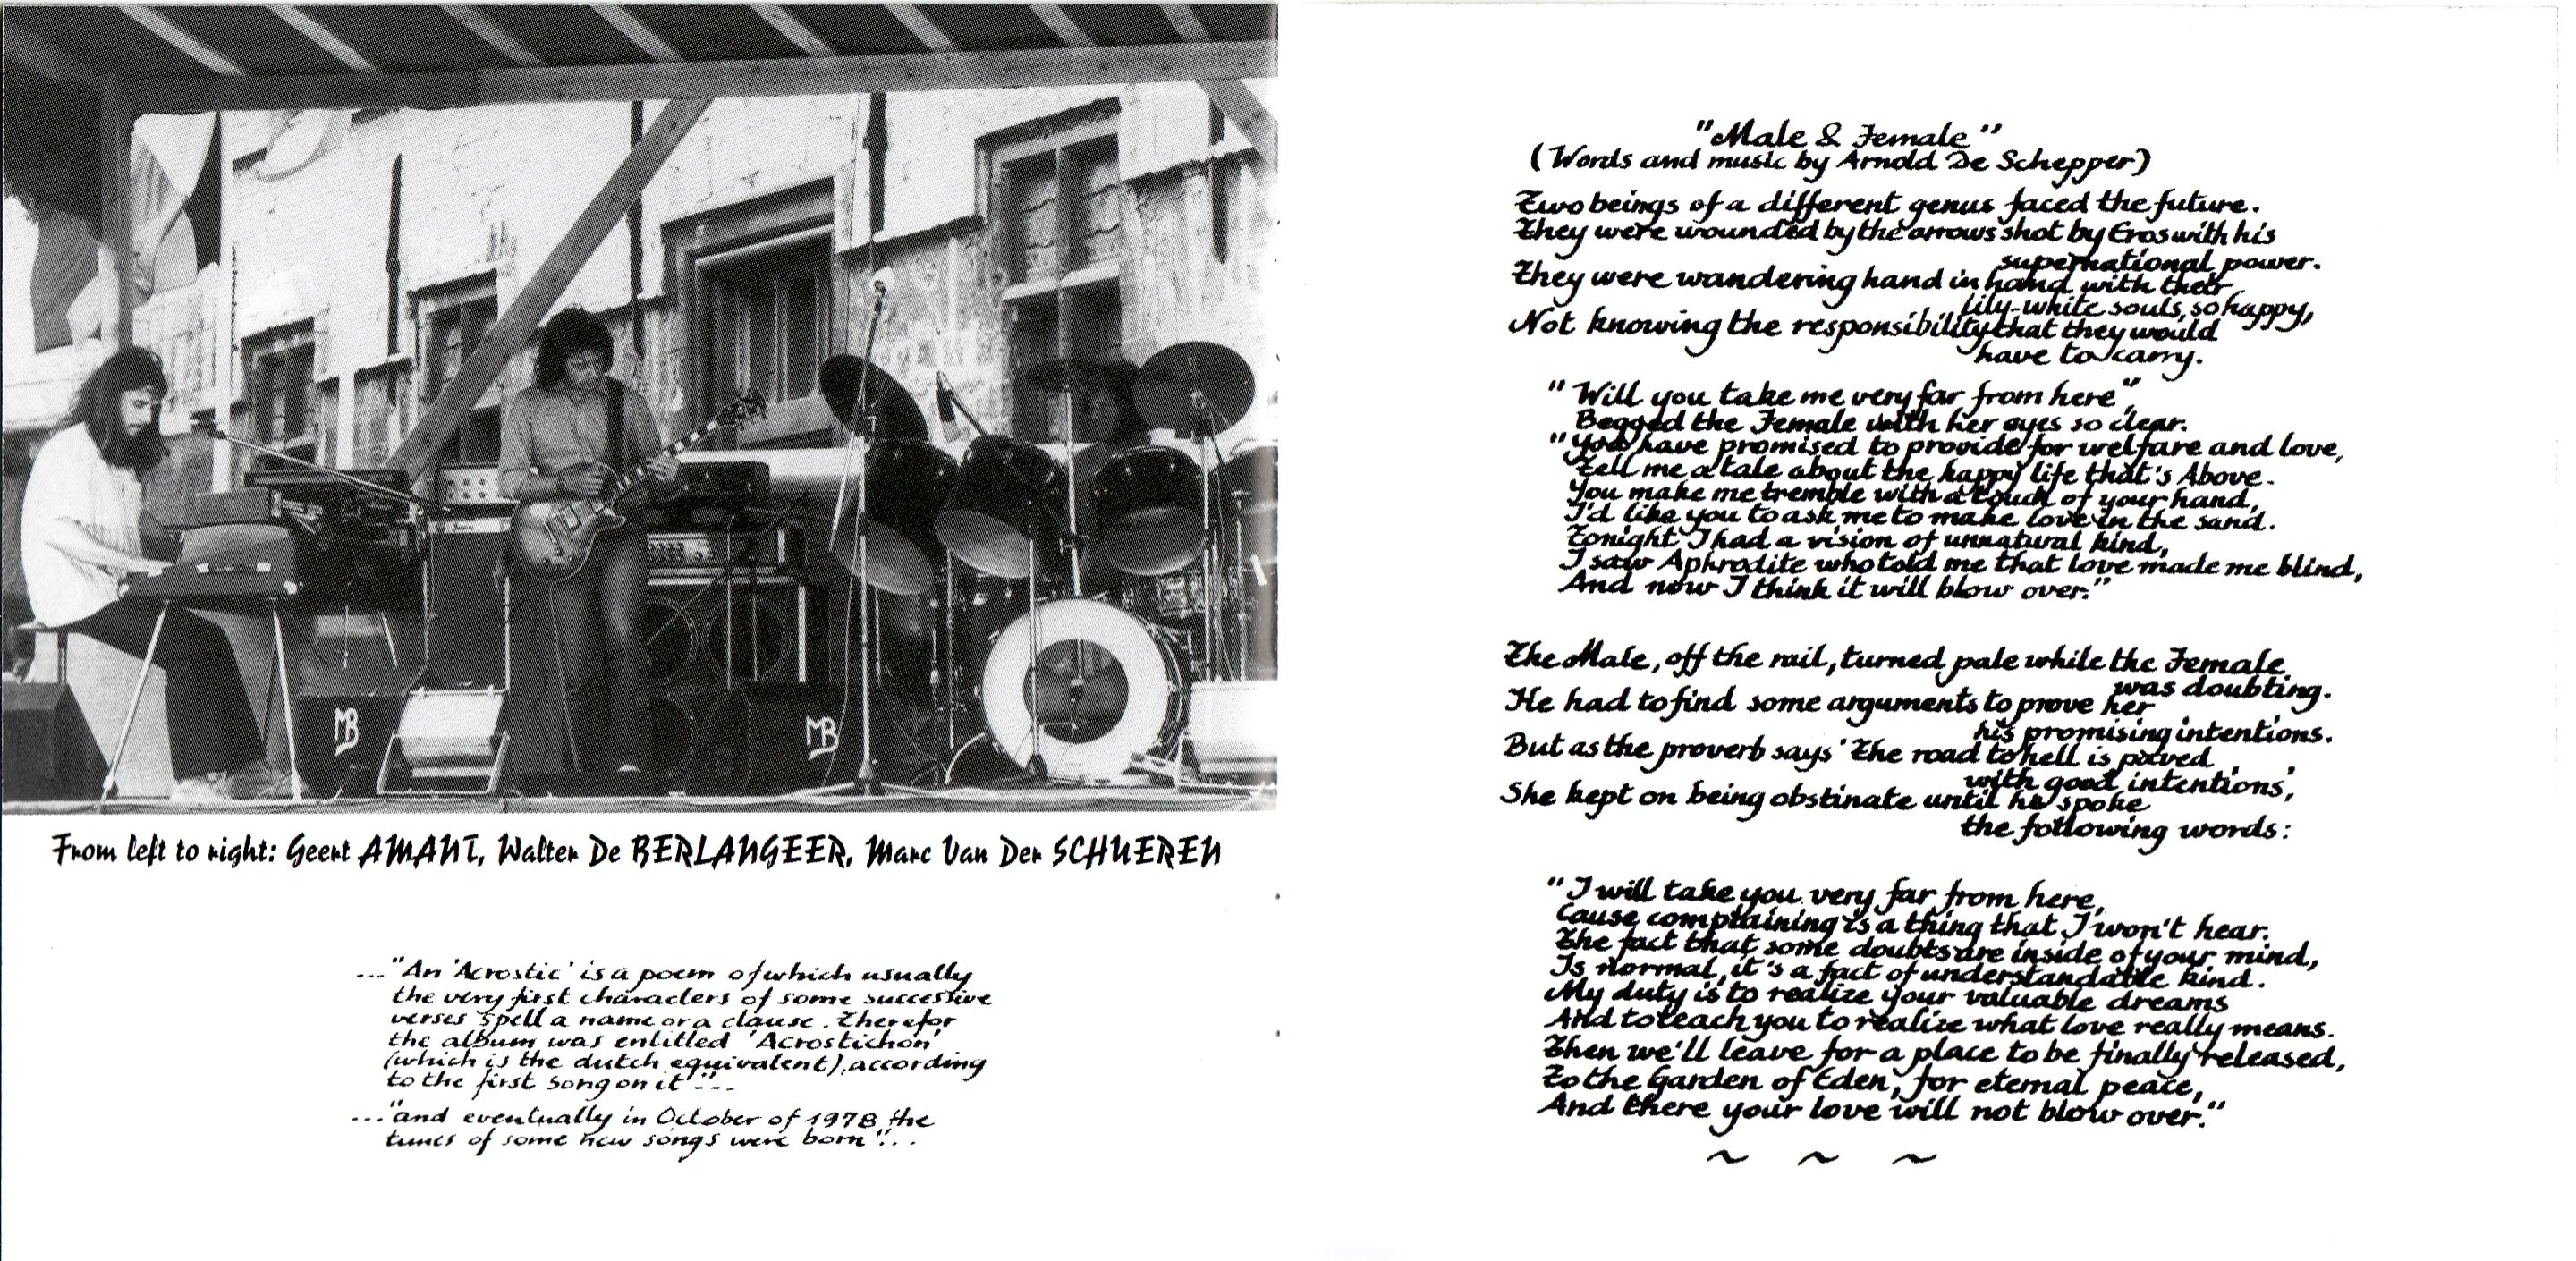 MB
MB
From left to right: Geert AMANT, Walter De BERLANGEER, Marc Van Der SCHUEREN
..."An 'Acrostic' is a poem of which usually
the very first characters of some successive
verses spell a name or a clause. Therefor
the album was entitled 'Acrostichon'
(which is the dutch equivalent), according
to the first song on it"...
..."and eventually in October of 1978 the
tunes of some new songs were born"...
"Male & Female"
(Words and music by Arnold De Schepper)
Two beings of a different genus faced the future.
They were wounded by the arrows shot by Eros with his
supernational power.
They were wandering hand in hand with their
lily-white souls, so happy,
Not knowing the responsibility that they would
have to carry.
"Will you take me very far from here",
Begged the Female with her eyes so clear.
"You have promised to provide for welfare and love,
Tell me a tale about the happy life that's Above.
You make me tremble with a touch of your hand,
I'd like you to ask me to make love in the sand.
Tonight I had a vision of unnatural kind,
I saw Aphrodite who told me that love made me blind,
And now I think it will blow over."
The Male, off the rail, turned pale while the Female
was doubting.
He had to find some arguments to prove her
his promising intentions.
But as the proverb says 'The road to hell is paved
with good intentions',
She kept on being obstinate until he spoke
the following words:
"I will take you very far from here,
Cause complaining is a thing that I won't hear.
The fact that some doubts are inside of your mind,
Is normal, it's a fact of understandable kind.
My duty is to realize your valuable dreams
And to teach you to realize what love really means.
Then we'll leave for a place to be finally released,
To the Garden of Eden, for eternal peace,
And there your love will not blow over."
~ ~ ~